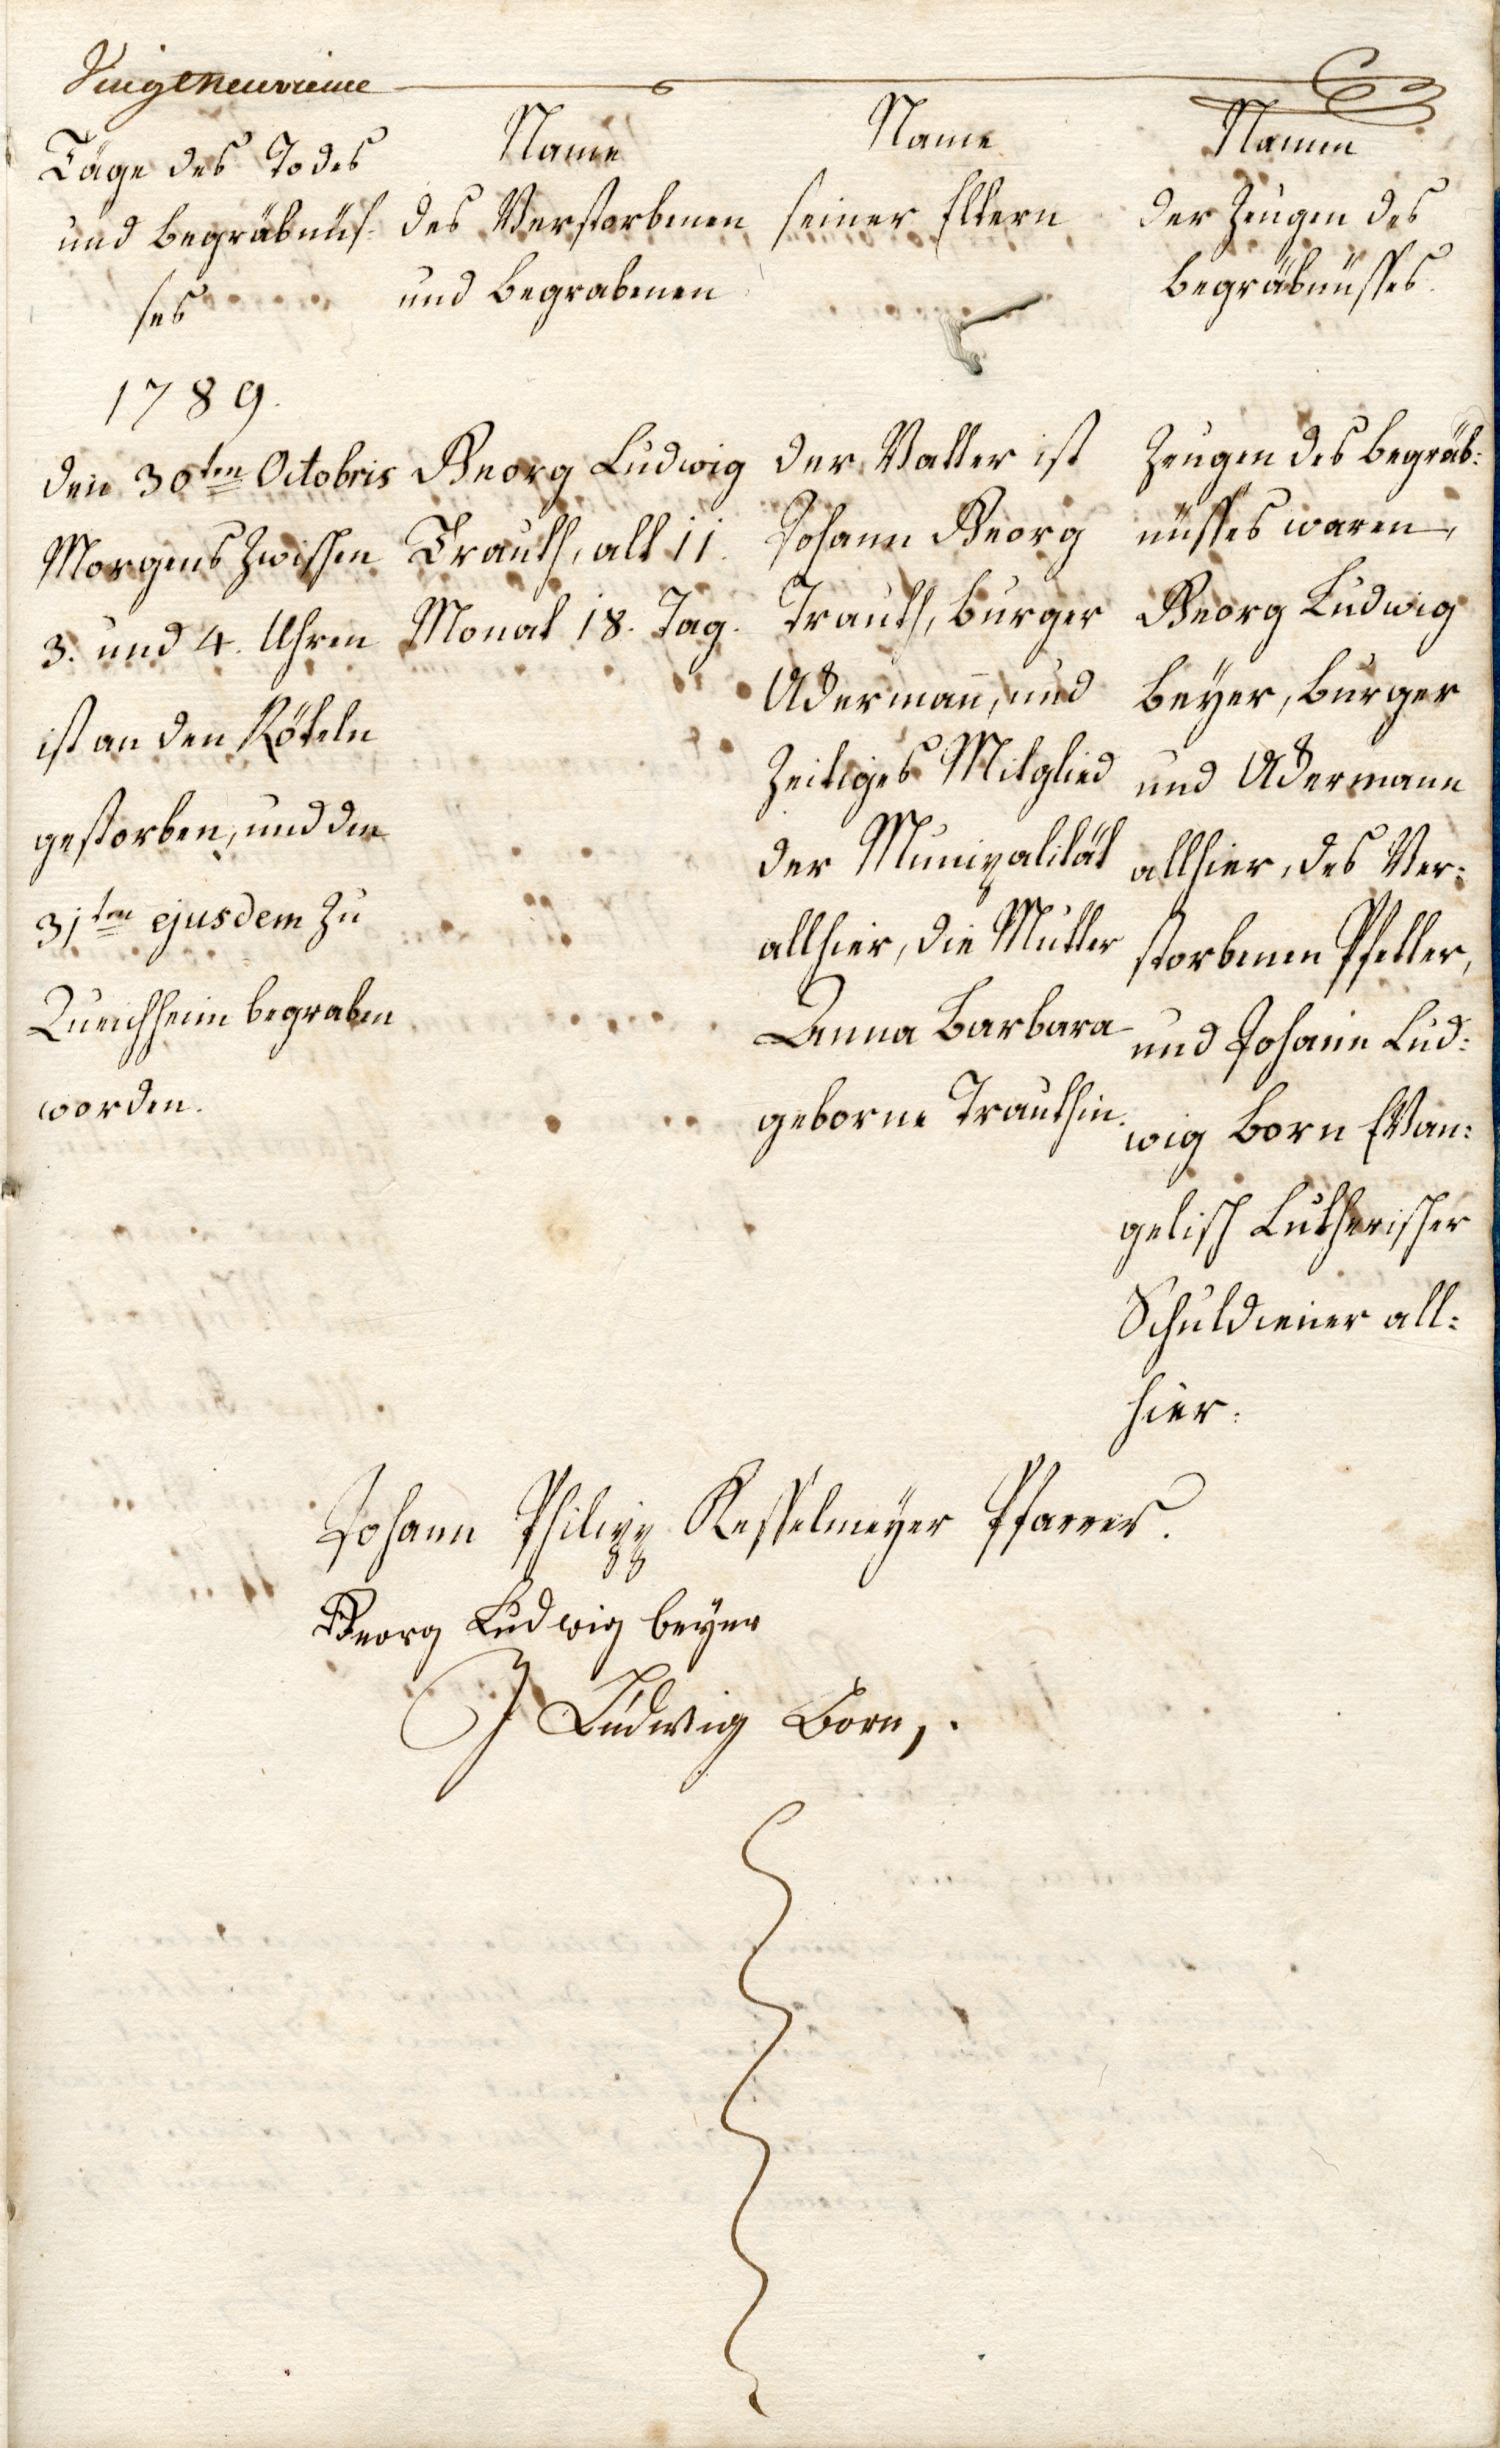 Vingtneuvieme
Täge des Todes
und begräbnüs-
ses
Name
des Verstorbenen
und begrabenen
Name
seiner Eltern
Namen
der Zeugen des
begräbnüsses.
1789.
den 30ten Octobris
Morgens Zwischen
3. und 4. Uhren
ist an den Röteln
gestorben, und den
31ten ejusdem zu
Queichheim begraben
worden.
Georg Ludwig
Trauth, alt 11.
Monat 18. Tag.
der Vatter ist
Johann Georg
Trauth, burger
Ackermann, und
Zeitiges Mitglied
der Munizpalität
allhier, die Mutter
Anna Barbara
geborne Trauthin.
Zeugen des begräb:
nüsses waren,
Georg Ludwig
beyer, burger
und Ackermann
allhier, des Ver:
storbenen Pfetter,
und Johann Lud:
wig Born Evan:
gelisch Lutherischer
Schuldiener all:
hier.
Johann Philipp Kesselmeyer Pfarrer.
Georg Ludwig beyer
J Ludwig Born,.